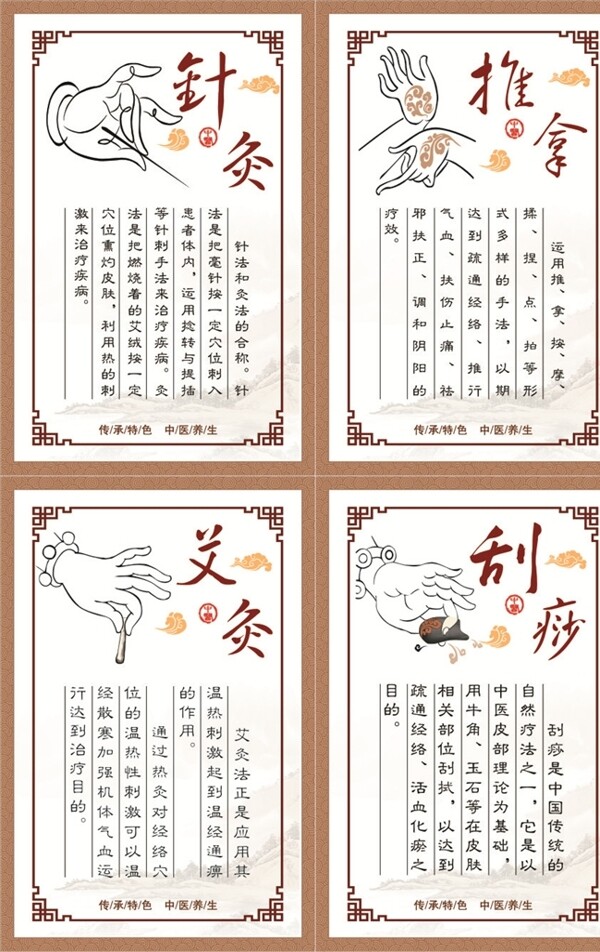 針灸
针法和灸法的合称。针
法是把毫针按一定穴位刺入
患者体内，运用捻转与提插
等针刺手法来治疗疾病。灸
法是把燃烧着的艾绒按一定
穴位熏灼皮肤，利用热的刺
激来治疗疾病。
传/承/特/色 中/医/养/生
推拿
运用推、拿、按、摩、
揉、捏、点、拍等形
式多样的手法，以期
达到疏通经络、推行
气血、扶伤止痛、祛
邪扶正、调和阴阳的
疗效。
传/承/特/色 中/医/养/生
艾灸
艾灸法正是应用其
温热刺激起到温经通痹
的作用。
通过热灸对经络穴
位的温热性刺激可以温
经散寒加强机体气血运
行达到治疗目的。
传/承/特/色 中/医/养/生
刮痧
刮痧是中国传统的
自然疗法之一，它是以
中医皮部理论为基础，
用牛角、玉石等在皮肤
相关部位刮拭，以达到
疏通经络、活血化瘀之
目的。
传/承/特/色 中/医/养/生